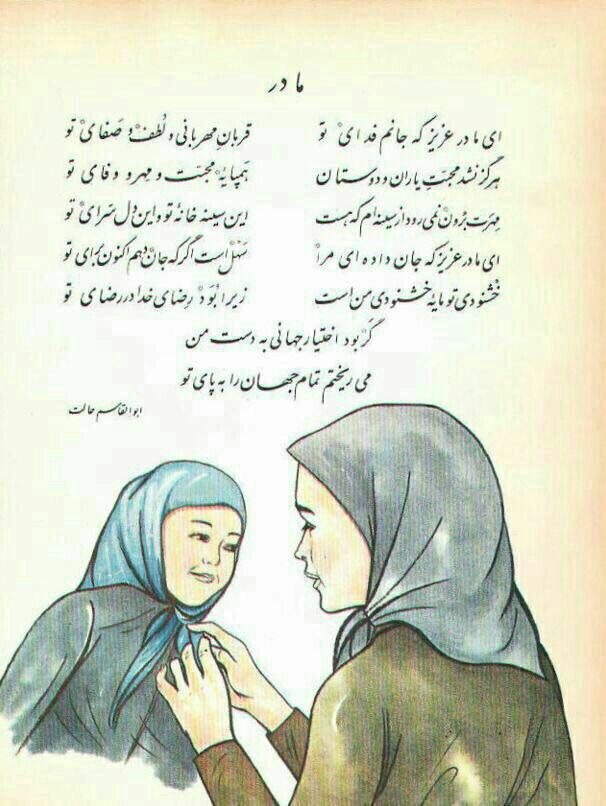 مادر
ای مادر عزیز که جانم فدای تو قربانِ مهربانی و لُطف و صَفای تو
هرگز نشد محبّتِ یاران و دوستان هَمپایۀ محبّت و مِهر و وفای تو
مِهرَت بُرون نمی رود از سینه ام که هست این سینه خانۀ تو و این دل سَرای تو
ای مادر عزیز که جان داده ای مرا سَهْل است اگر که جان دهم اکنون برای تو
خُشنودی تو مایۀ خشنودی من است زیرا بُوَد رِضای خدا در رضای تو
گر بود اختیار جهانی به دست من
می ریختم تمام جهان را به پای تو
ابوالقاسم حالت